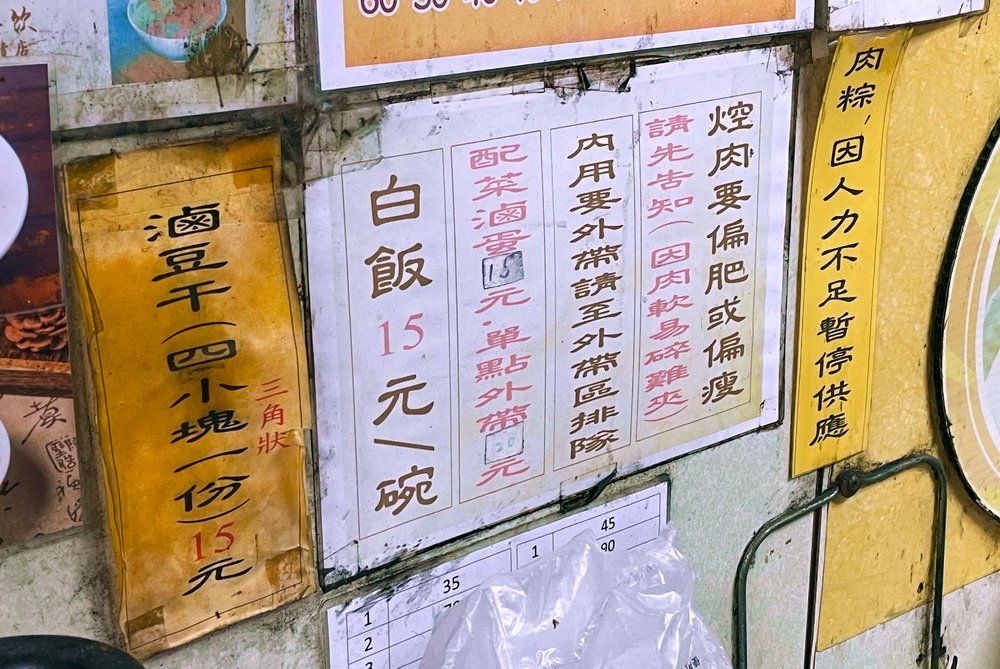 肉粽，因人力不足暫停供應
焢肉要偏肥或偏瘦
請先告知(因肉軟易碎難夾)
內用要外帶請至外帶區排隊
配菜滷蛋15元.單點外帶20元
白飯15元/碗
三角狀
滷豆干(四小塊一份)15元
飲
店
1 35
2
3
1 45
90